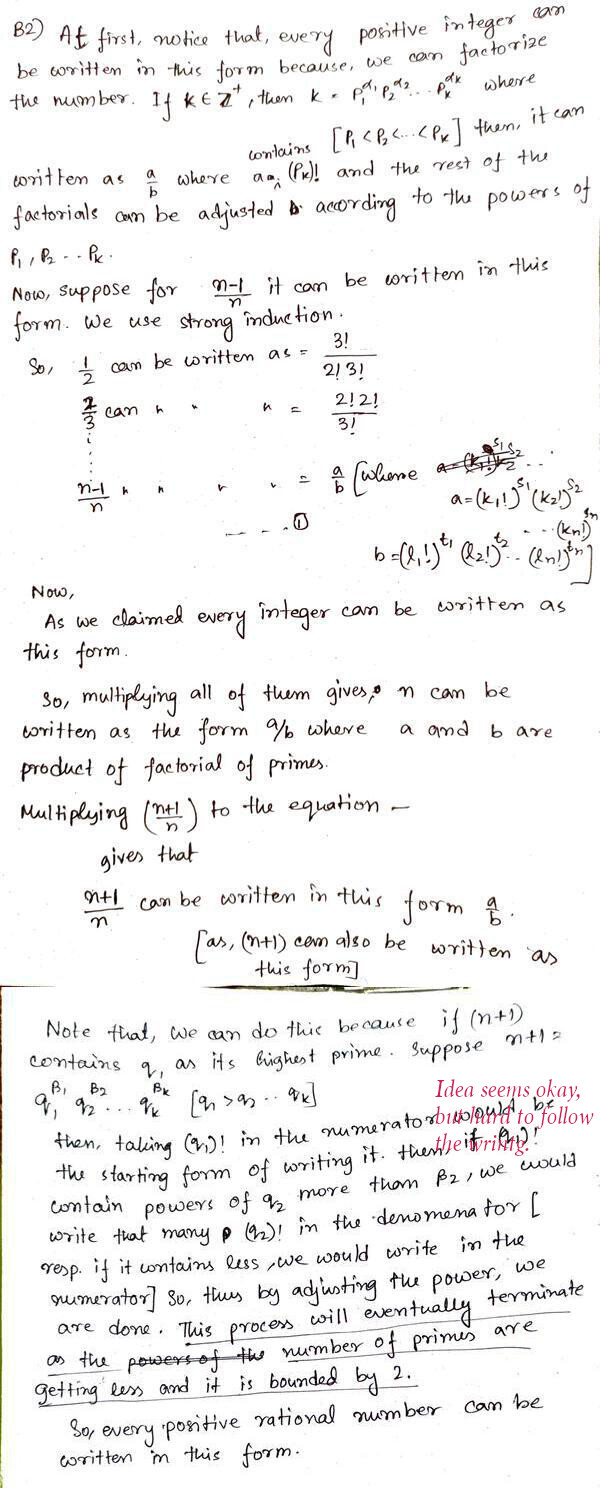 B2) At first, notice that, every positive integer can
be written in this form because, we can factorize
the number. If k ∈ Z⁺, then k = p₁^α₁ p₂^α₂ ... pₖ^αₖ where
[p₁ < p₂ < ... < pₖ] then, it can
written as a/b where a contains (pₖ)! and the rest of the
factorials can be adjusted according to the powers of
p₁, p₂ ... pₖ.
Now, suppose for (n-1)/n it can be written in this
form. We use strong induction.
So, 1/2 can be written as = 3!/(2! 3!)
2/3 can " " " = (2! 2!)/3!
(n-1)/n " " " " = a/b [where
a = (k₁!)^s₁ (k₂!)^s₂
... (kₙ!)^sₙ
---- ①
b = (l₁!)^t₁ (l₂!)^t₂ ... (lₙ!)^tₙ]
Now,
As we claimed every integer can be written as
this form.
So, multiplying all of them gives, n can be
written as the form a/b where a and b are
product of factorial of primes.
Multiplying ((n+1)/n) to the equation –
gives that
(n+1)/n can be written in this form a/b.
[as, (n+1) can also be written as
this form]
Note that, we can do this because if (n+1)
contains q₁ as its highest prime. Suppose n+1 =
q₁^β₁ q₂^β₂ ... qₖ^βₖ [q₁ > q₂ ... qₖ]
Idea seems okay,
but hard to follow
the writing.
then, taking (q₁)! in the numerator would be
the starting form of writing it. then, if (q₁)!
contain powers of q₂ more than β₂, we would
write that many (q₂)! in the denomenator [
resp. if it contains less, we would write in the
numerator] So, thus by adjusting the power, we
are done. This process will eventually terminate
as the powers of the number of primes are
getting less and it is bounded by 2.
So, every positive rational number can be
written in this form.